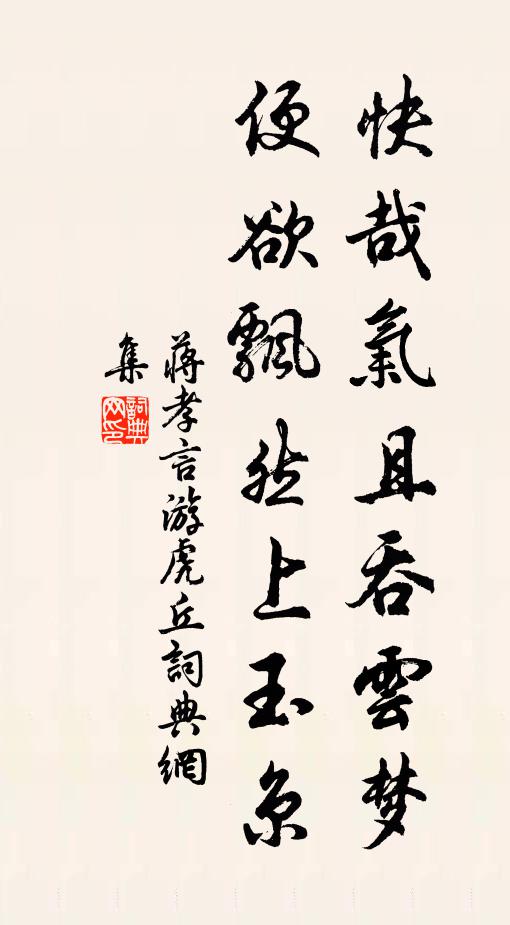 快哉氣且吞雲梦
便欲飄然上玉京
蔣孝言游虎丘詞典網
集
詞典网印